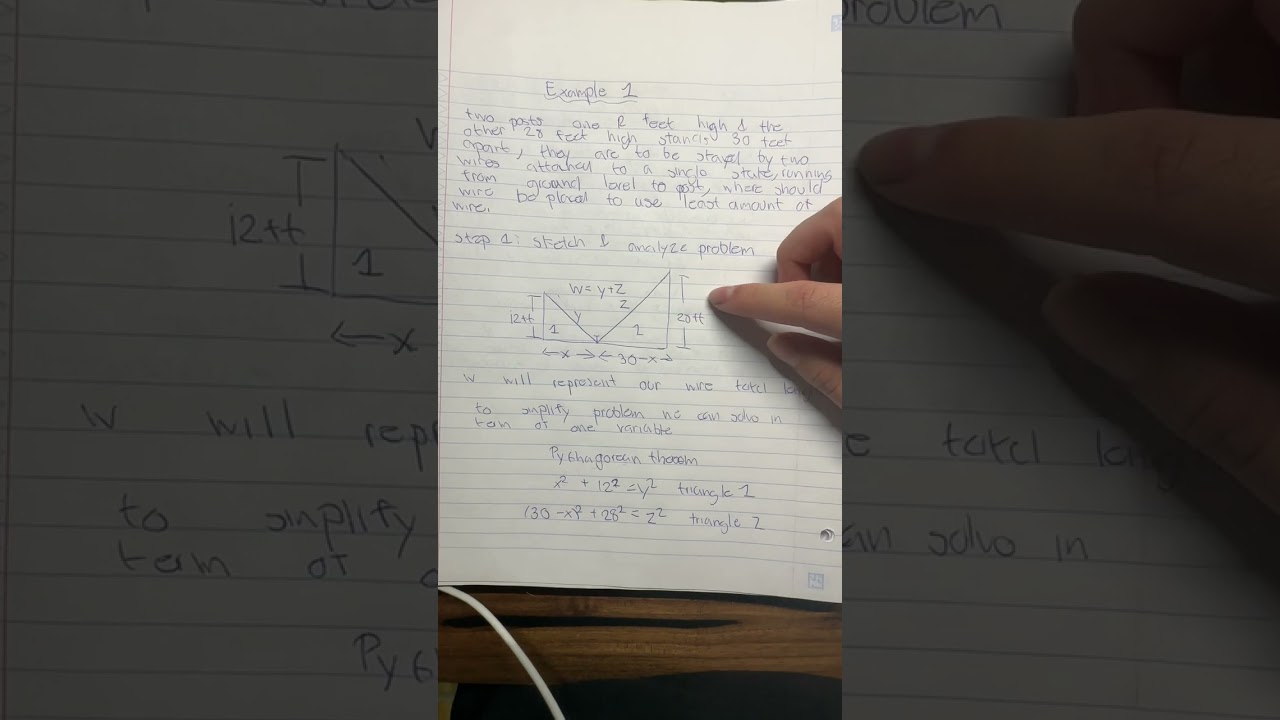 Example 1
two posts one 12 feet high & the
other 28 feet high stands 30 feet
apart, they are to be stayed by two
wires attached to a single stake, running
from ground level to post, where should
wire be placed to use least amount of
wire.
step 1: sketch & analyze problem
W = y+Z
12ft
y
Z
1
2
28ft
← x → ← 30-x →
W will represent our wire total
to simplify problem we can solve in
term of one variable
Pythagorean theorem
x² + 12² = y² triangle 1
(30 -x)² + 28² = Z² triangle 2